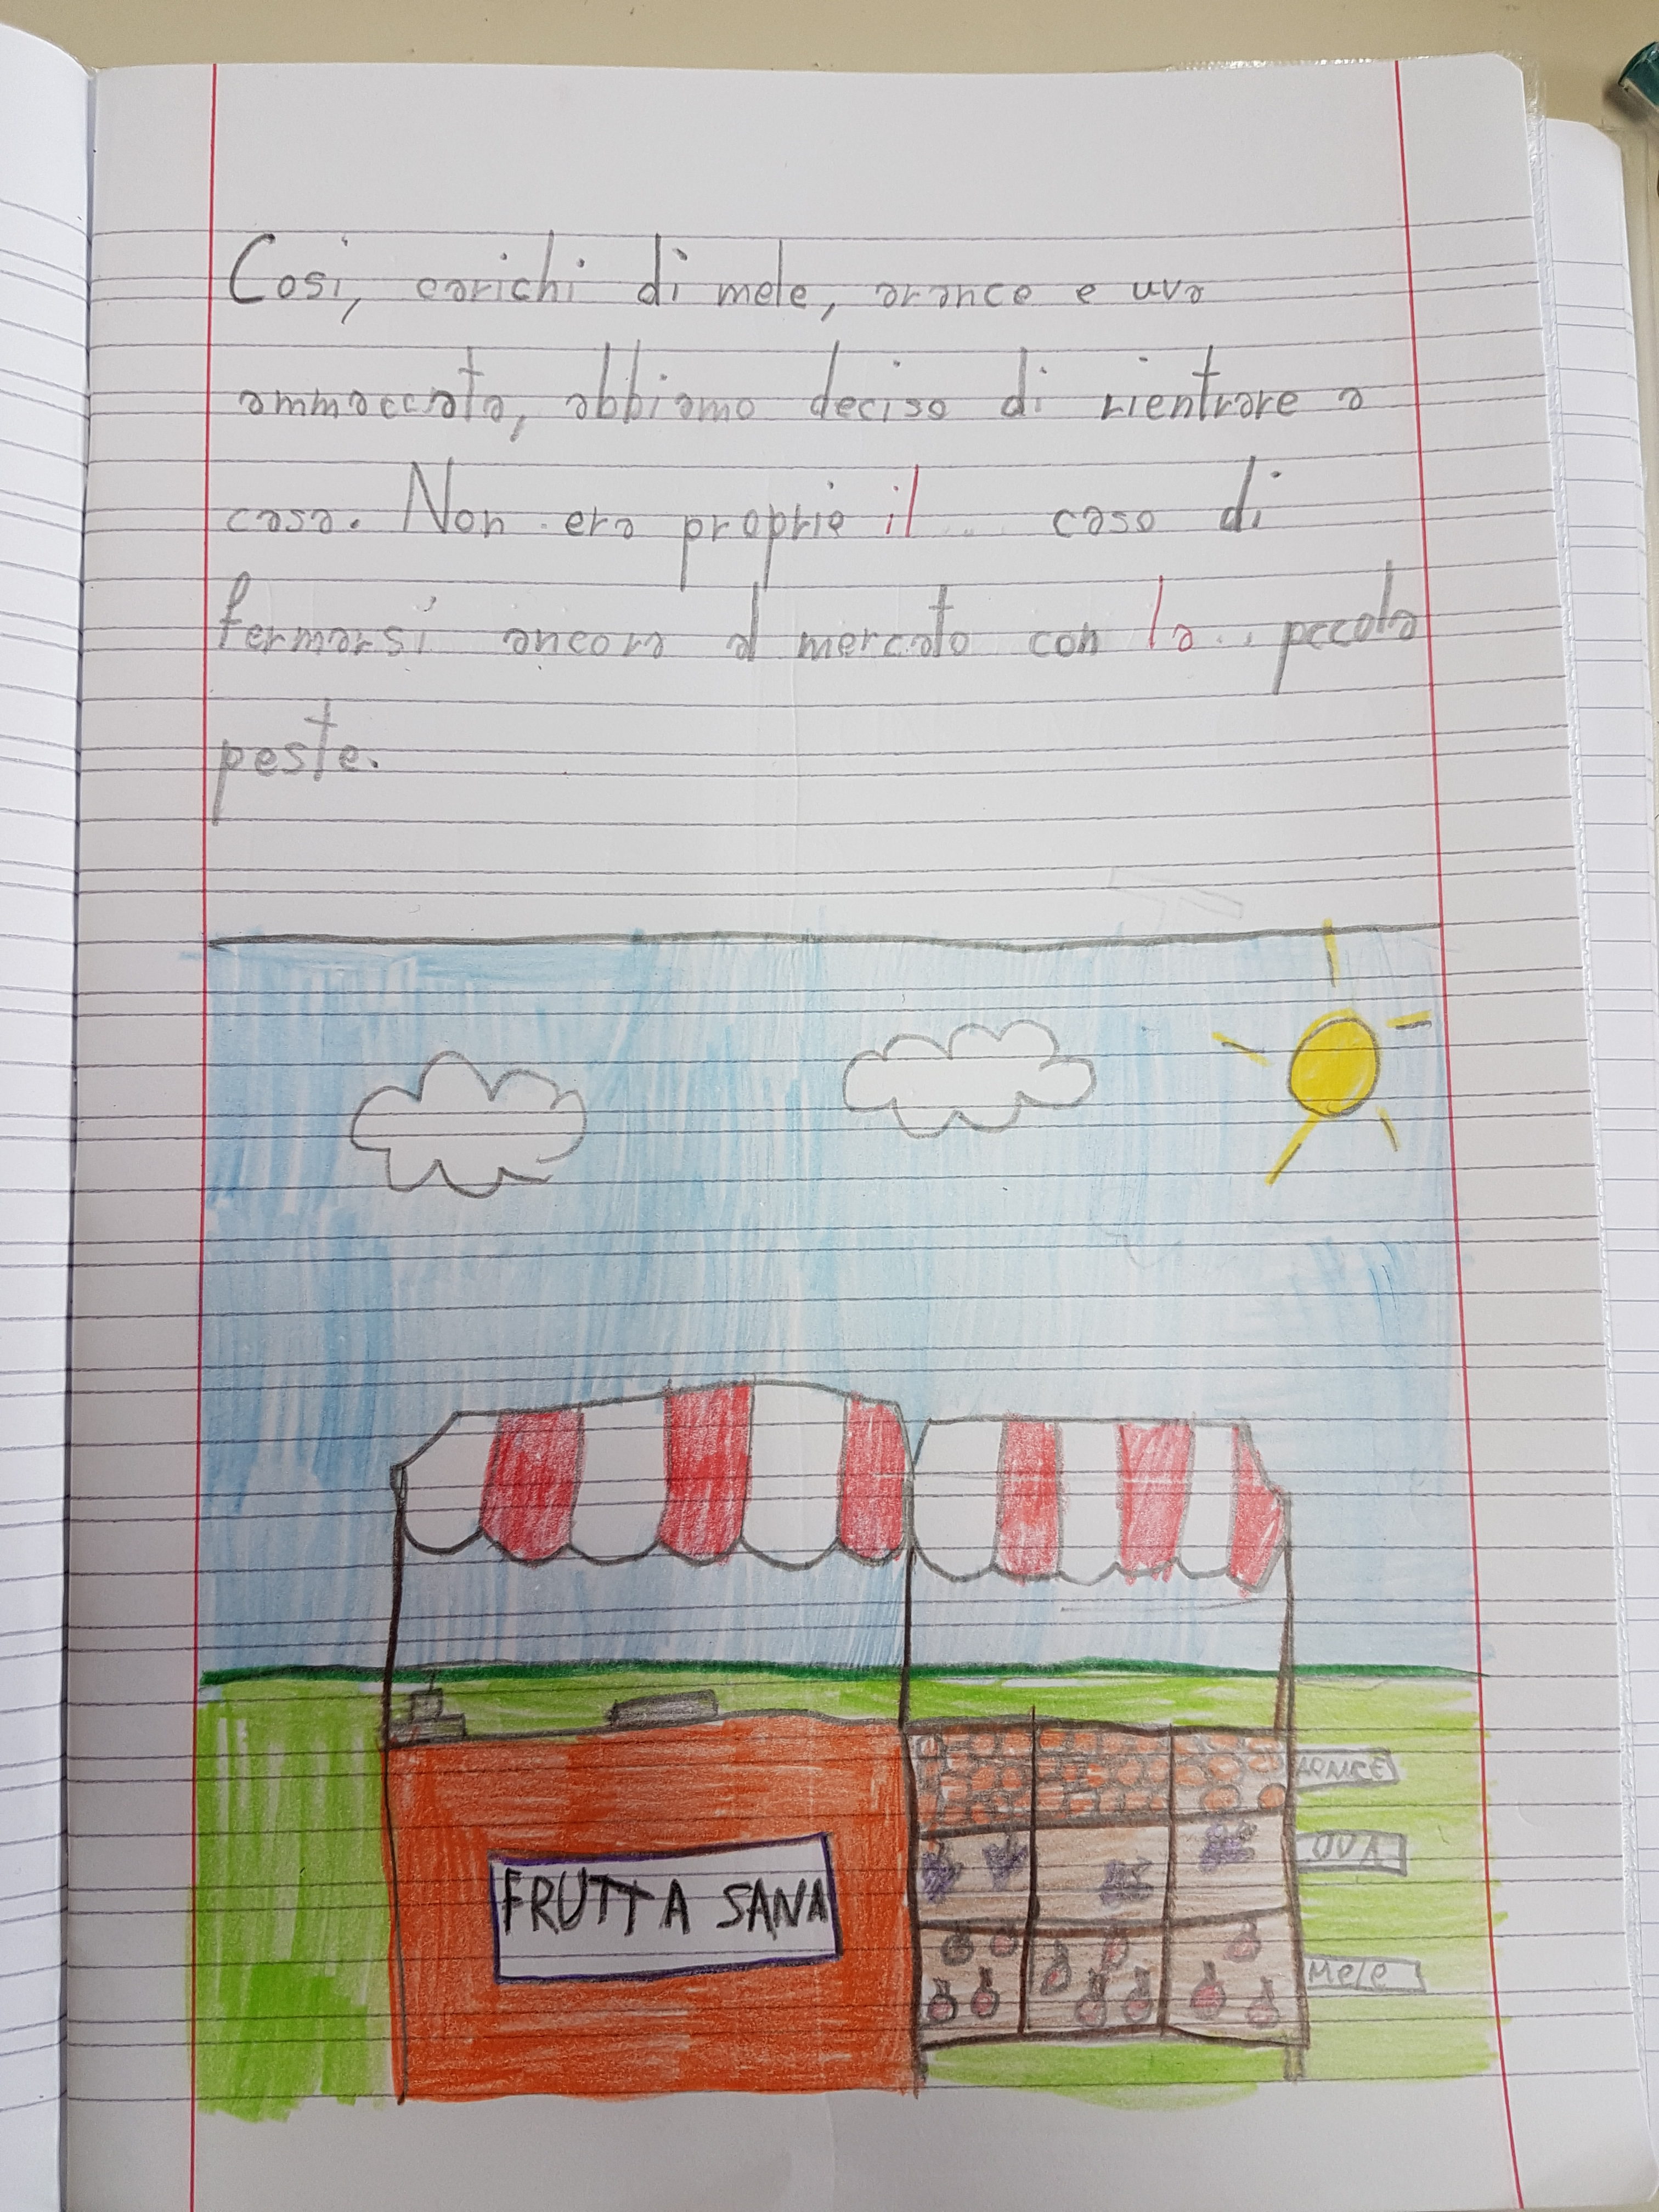 Cosi, carichi di mele, arance e uva
ammaccata, abbiamo deciso di rientrare a
casa. Non era proprio il ... caso di
fermarsi ancora al mercato con la... piccola
peste.
FRUTTA SANA
ARANCE
UVA
Mele